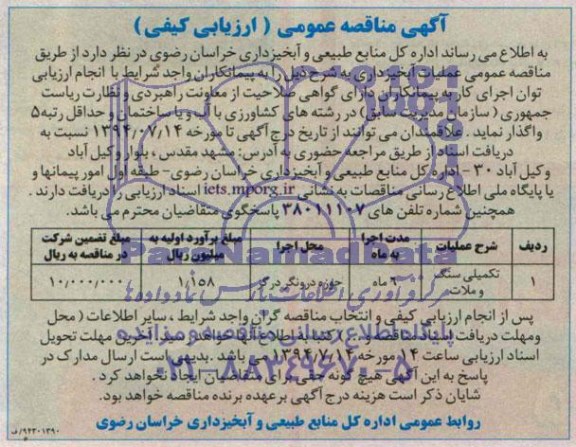 آگهی مناقصه عمومی ( ارزیابی کیفی )
به اطلاع می رساند اداره کل منابع طبیعی و آبخیزداری خراسان رضوی در نظر دارد از طریق
مناقصه عمومی عملیات آبخیزداری به شرح ذیل را به پیمانکاران واجد شرایط با انجام ارزیابی
توان اجرای کار به پیمانکاران دارای گواهی صلاحیت از معاونت راهبردی و نظارت ریاست
جمهوری ( سازمان مدیریت سابق) در رشته های کشاورزی یا آب و یا ساختمان و حداقل رتبه ۵
واگذار نماید . علاقمندان می توانند از تاریخ درج آگهی تا مورخه ۱۳۹۴/۰۷/۱۴ نسبت به
دریافت اسناد از طریق مراجعه حضوری به آدرس: مشهد مقدس ، بلوار وکیل آباد
وکیل آباد ۳۰ - اداره کل منابع طبیعی و آبخیزداری خراسان رضوی- طبقه اول امور پیمانها و
یا پایگاه ملی اطلاع رسانی مناقصات به نشانی iets.mporg.ir اسناد ارزیابی را دریافت دارند .
همچنین شماره تلفن های ۳۸۰۱۱۱۰۷ پاسخگوی متقاضیان محترم می باشد.
ردیف شرح عملیات مدت اجرا به ماه محل اجرا مبلغ برآورد اولیه به میلیون ریال مبلغ تضمین شرکت در مناقصه به ریال
۱ تکمیلی سنگ و ملات ۶ ماه حوزه درونگر درگز ۱,۱۵۸ ۱۰,۰۰۰,۰۰۰
پس از انجام ارزیابی کیفی و انتخاب مناقصه گران واجد شرایط ، سایر اطلاعات ( محل
ومهلت دریافت اسناد مناقصه و...) کتبا به اطلاع آنها خواهد رسید. آخرین مهلت تحویل
اسناد ارزیابی ساعت ۱۴ مورخه ۱۳۹۴/۷/۱۴ می باشد . بدیهی است ارسال مدارک در
پاسخ به این آگهی هیچ گونه حقی برای متقاضیان ایجاد نخواهد کرد .
شایان ذکر است هزینه درج آگهی بر عهده برنده مناقصه خواهد بود.
روابط عمومی اداره کل منابع طبیعی و آبخیزداری خراسان رضوی
۹۴۳۰۱۳۹۰/ف
ParsNamadData
مرکز فرآوری اطلاعات پارس نماد داده ها
پایگاه اطلاع رسانی مناقصه و مزایده
۰۲۱-۸۸۳۴۹۶۷۰-۵